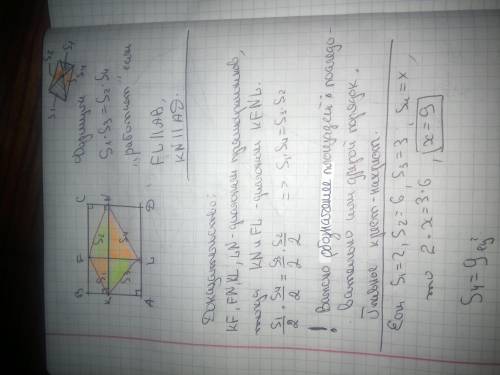 формула
S₁·S₃=S₂·S₄
„работает“, если
FL∥AB,
KN∥AD.
S₁
S₂
S₃
S₄
B
F
C
K
N
A
L
D
S₁
S₂
S₃
S₄
Доказательство:
KF, FN, KL, LN - диагонали прямоугольников,
тогда KN и FL - диагонали KFNL.
S₁/2 · S₄/2 = S₃/2 · S₂/2 => S₁·S₄=S₃·S₂
! Важно обозначение площадей: последо-
вательно или другой порядок.
Главное крест-накрест.
Если S₁=2, S₂=6, S₃=3, S₄=x,
то 2·x=3·6, x=9
S₄=9 ед²